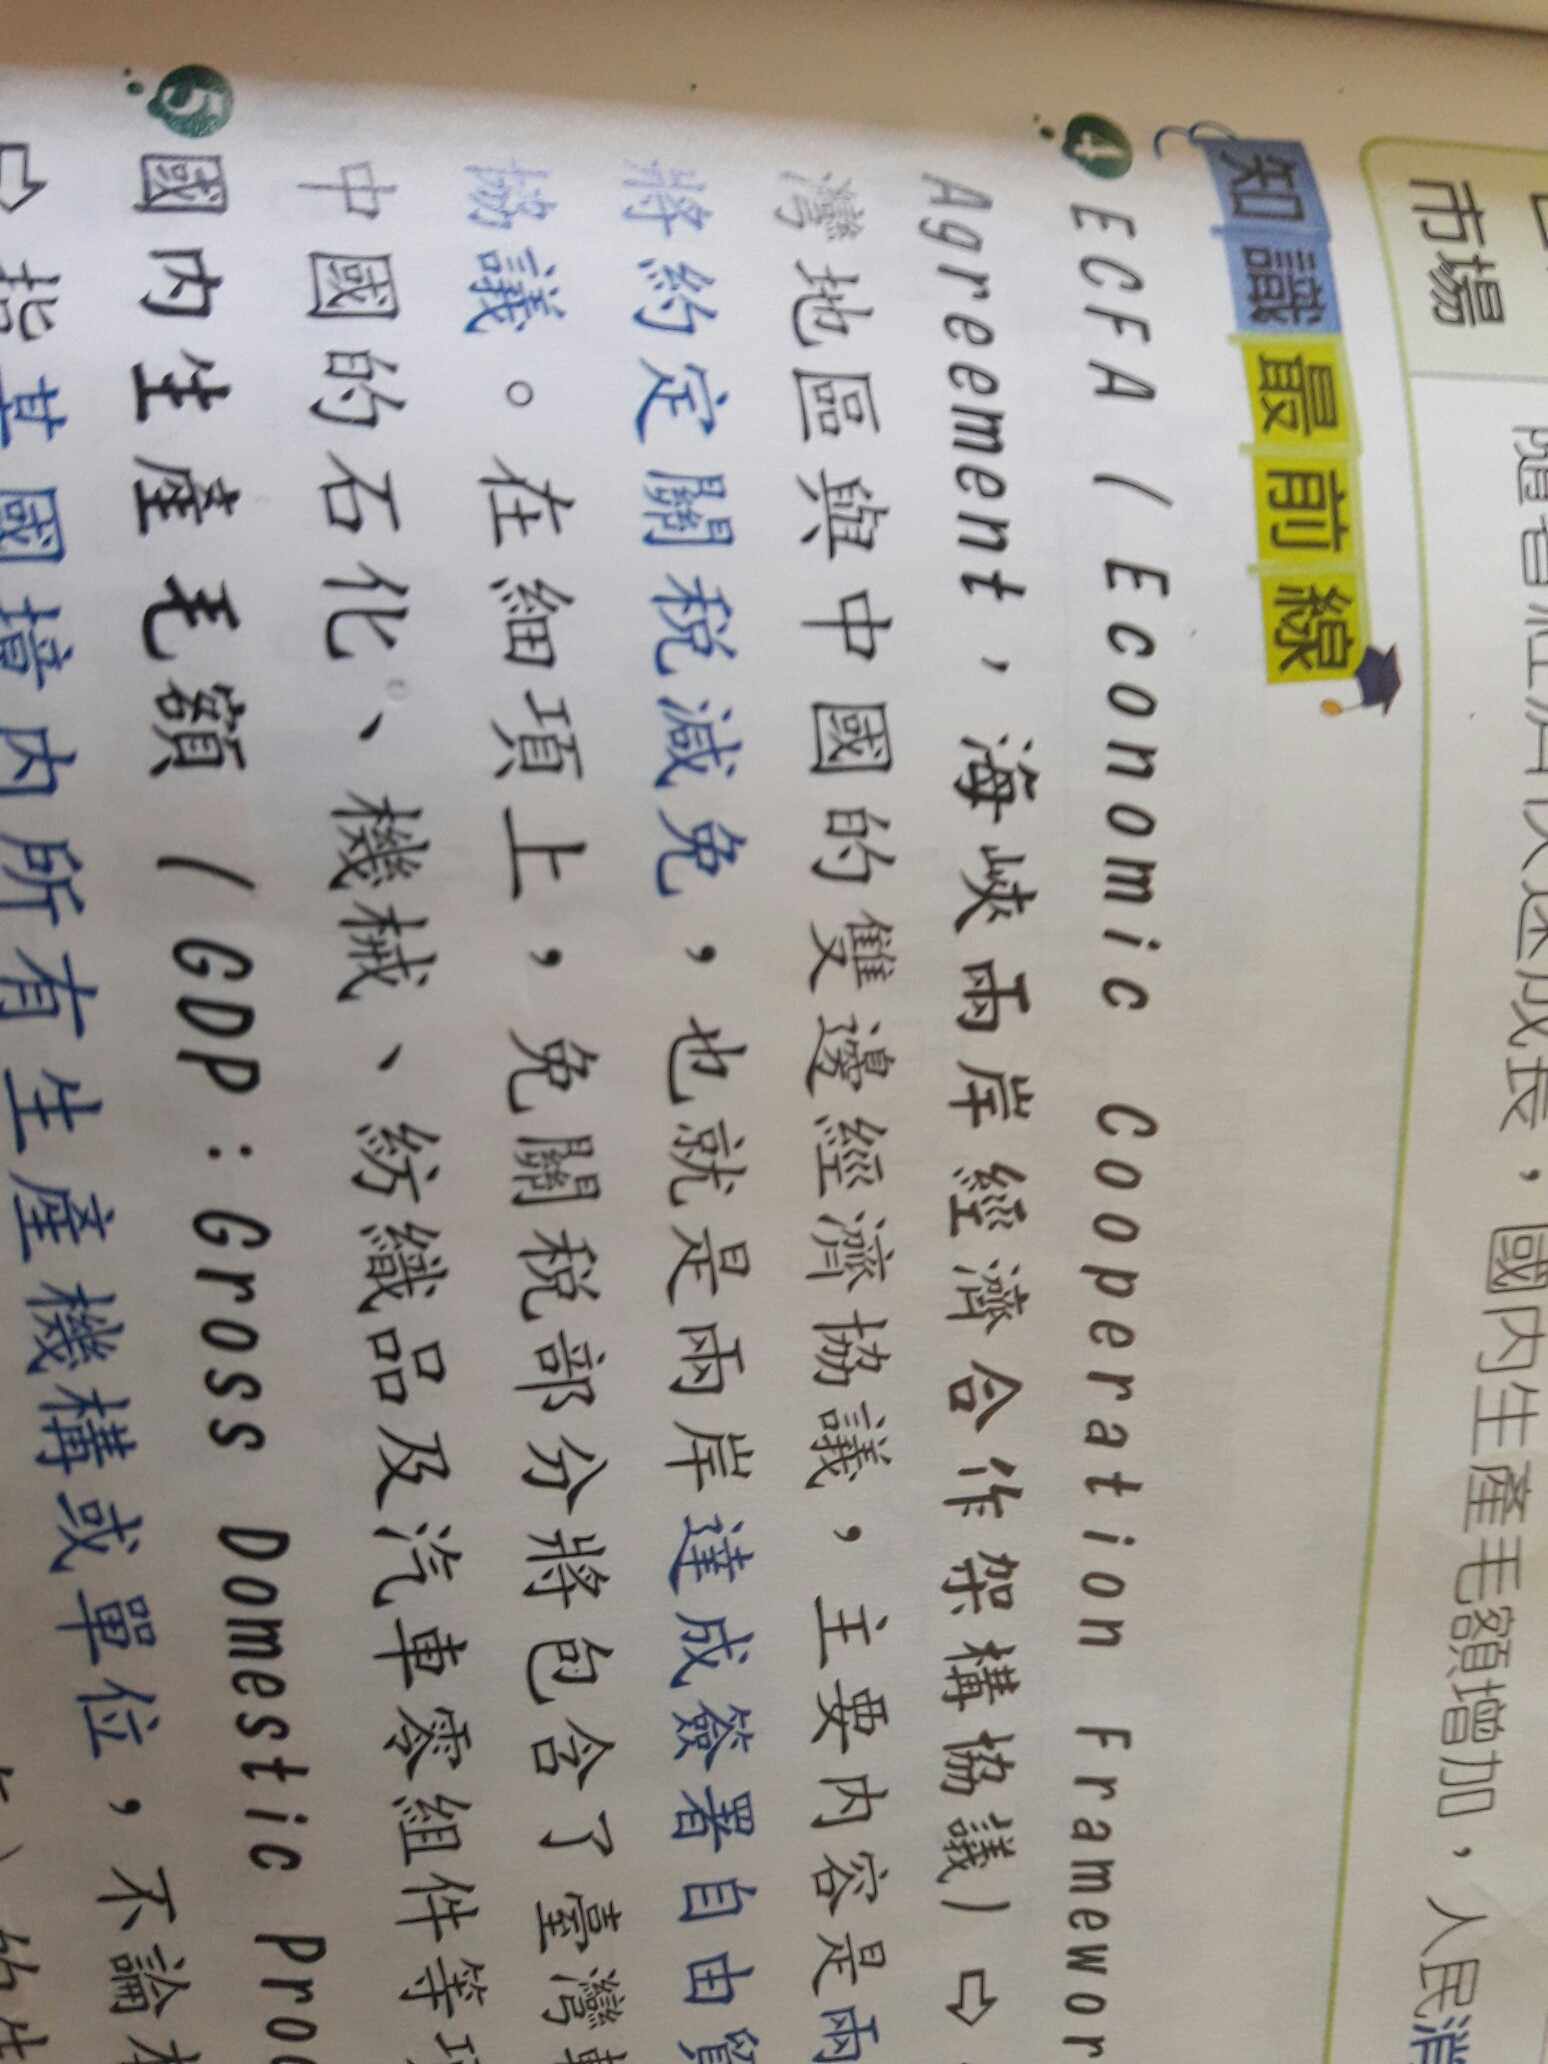 市場
隨著經濟快速成長，國內生產毛額增加，人民消
知識最前線
4 ECFA（Economic Cooperation Framewor
Agreement，海峽兩岸經濟合作架構協議）⇨
灣地區與中國的雙邊經濟協議，主要內容是兩
將約定關稅減免，也就是兩岸達成簽署自由貿
協議。在細項上，免關稅部分將包含了臺灣
中國的石化、機械、紡織品及汽車零組件等項
5 國內生產毛額（GDP：Gross Domestic Pro
⇨指某國境內所有生產機構或單位，不論本